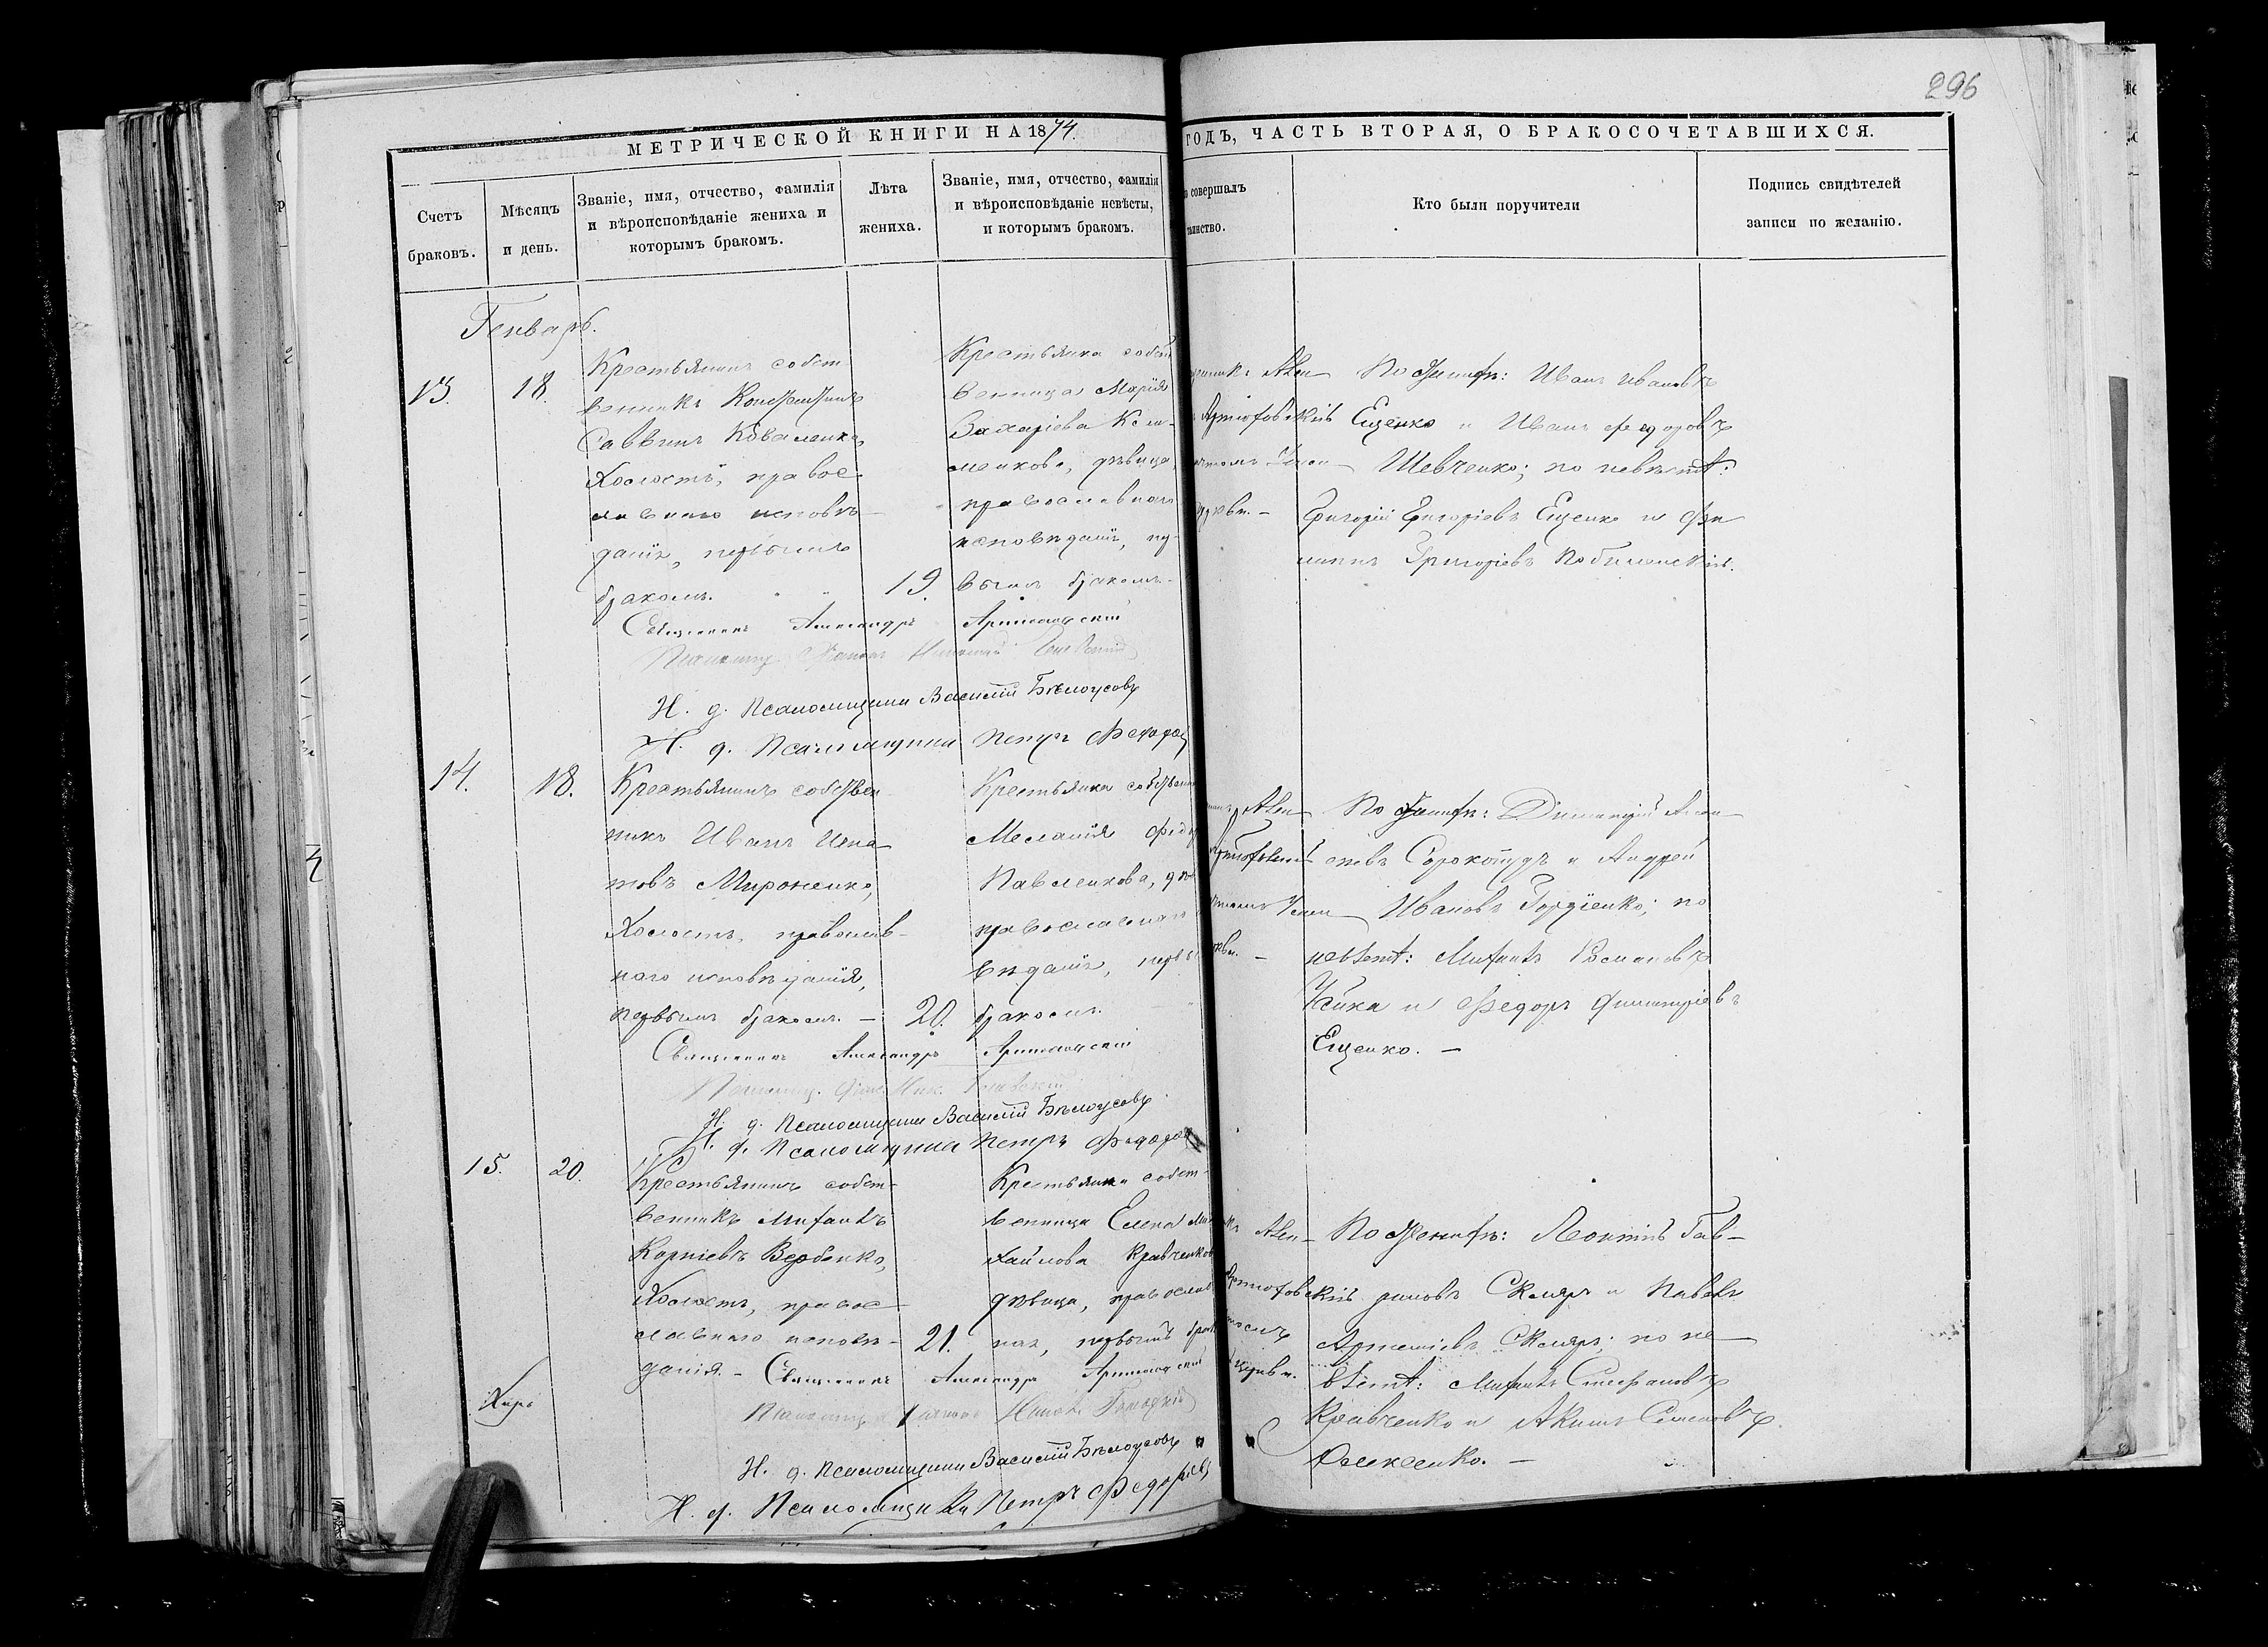 296
МЕТРИЧЕСКОЙ КНИГИ НА 1874.
ГОДЪ, ЧАСТЬ ВТОРАЯ, О БРАКОСОЧЕТАВШИХСЯ.
Счетъ браковъ.
Мѣсяцъ и день.
Званіе, имя, отчество, фамилія
и вѣроисповѣданіе жениха и
которымъ бракомъ.
Лѣта
жениха.
Званіе, имя, отчество, фамилія
и вѣроисповѣданіе невѣсты,
и которымъ бракомъ.
совершалъ
таинство.
Кто были поручители
Подпись свидѣтелей
записи по желанію.
Генварь.
13.
18.
Крестьянинъ собст
венникъ Константинъ
Саввинъ Коваленко,
Холостъ, правос
лавнаго исповѣ
данія, первымъ
бракомъ.
19.
Крестьянка собст
венница Марія
Захаріева
дѣвица,
православнаго
исповѣданія, пер
вымъ бракомъ.
По женихѣ: Иванъ Ивановъ
Ещенко и Иванъ Федоровъ
Шевченко; по невѣстѣ:
Григорій Григорьевъ Ещенко и Фи
липпъ Григорьевъ
Священникъ Александръ
И. д. Псаломщика Василій Бѣлоусовъ
И. д. Псаломщика Петръ Федоров
14.
18.
Крестьянинъ собствен
никъ Иванъ Игна
товъ Мироненко,
Холостъ, православ
наго исповѣданія,
первымъ бракомъ. —
20.
Крестьянка собственн
Меланія Федо
Павленкова, дѣв
православнаго
вѣданія, первы
бракомъ.
По женихѣ: Димитрій
Сорокотудъ и Андрей
Ивановъ Гордіенко; по
невѣстѣ: Михаилъ Романовъ
Чайка и Федоръ Димитріевъ
Ещенко. —
Священникъ Александръ
И. д. Псаломщика Василій Бѣлоусовъ
И. д. Псаломщика Петръ Федоров
15.
20.
Крестьянинъ собст-
венникъ Михаилъ
Корніевъ Вербенко,
Холостъ, правос
лавнаго исповѣ-
данія. —
21.
Крестьянка собст-
венница Елена Ми
хайлова Кравченков
дѣвица, православ
ная, первымъ брак
По женихѣ: Леонтій Гав-
риловъ Скляръ и Павелъ
Артеміевъ Скляръ; по не
вѣстѣ: Михаилъ Стефановъ
Кравченко и Акимъ Семеновъ
Олексенко. —
Священникъ Александръ
И. д. Псаломщика Василій Бѣлоусовъ
И. д. Псаломщика Петръ Федоровъ